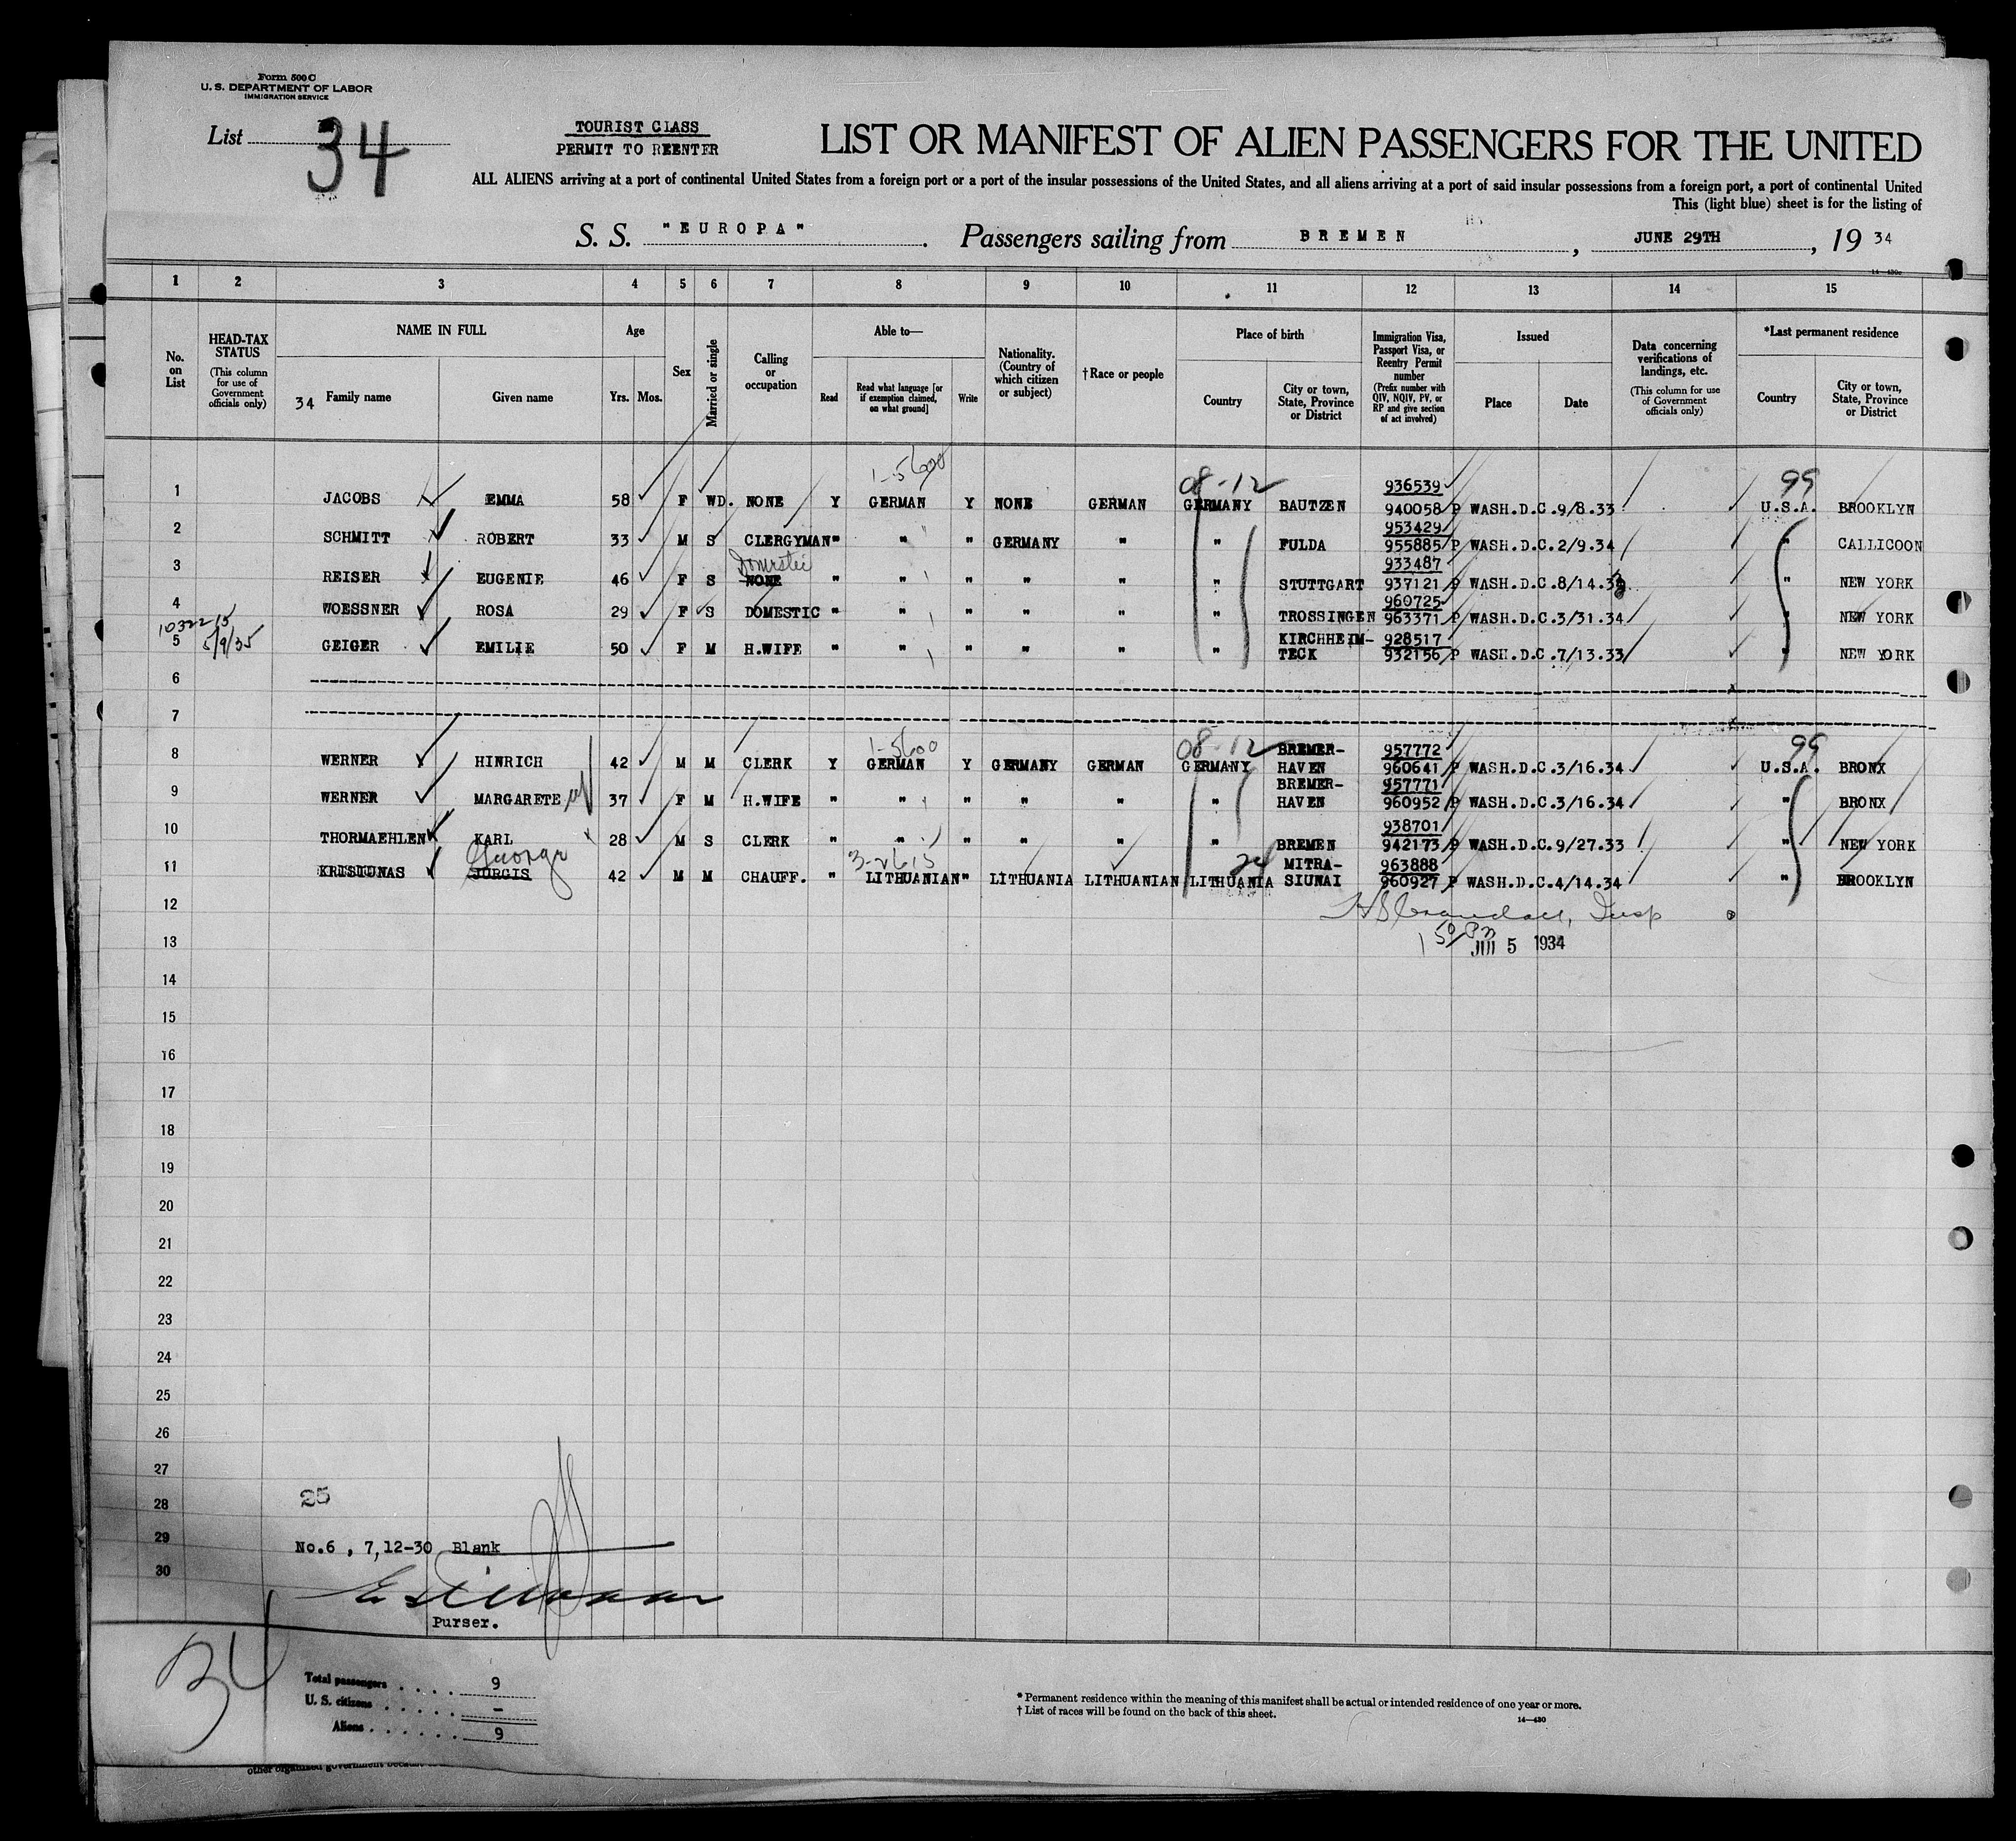 Form 500 C
U. S. DEPARTMENT OF LABOR
IMMIGRATION SERVICE
List 34
TOURIST CLASS
PERMIT TO REENTER
LIST OR MANIFEST OF ALIEN PASSENGERS FOR THE UNITED
ALL ALIENS arriving at a port of continental United States from a foreign port or a port of the insular possessions of the United States, and all aliens arriving at a port of said insular possessions from a foreign port, a port of continental United
This (light blue) sheet is for the listing of
S. S. "EUROPA". Passengers sailing from BREMEN, JUNE 29TH, 19 34
14-430c
1 2 3 4 5 6 7 8 9 10 11 12 13 14 15
No. on List
HEAD-TAX STATUS
(This column for use of Government officials only)
NAME IN FULL
34 Family name
Given name
Age
Yrs. Mos.
Sex
Married or single
Calling or occupation
Able to—
Read
Read what language [or if exemption claimed, on what ground]
Write
Nationality. (Country of which citizen or subject)
†Race or people
Place of birth
Country
City or town, State, Province or District
Immigration Visa, Passport Visa, or Reentry Permit number
(Prefix number with QIV, NQIV, PV, or RP and give section of act involved)
Issued
Place
Date
Data concerning verifications of landings, etc.
(This column for use of Government officials only)
*Last permanent residence
Country
City or town, State, Province or District
1-5600 08-12 936539 99
1 JACOBS EMMA 58 F WD. NONE Y GERMAN Y NONE GERMAN GERMANY BAUTZEN 940058 P WASH.D.C.9/8.33 U.S.A. BROOKLYN
953429
2 SCHMITT ROBERT 33 M S CLERGYMAN " " " GERMANY " " FULDA 955885 P WASH.D.C.2/9.34 " CALLICOON
933487
3 REISER EUGENIE 46 F S NONE " " " " " " STUTTGART 937121 P WASH.D.C.8/14.33 " NEW YORK
960725
4 WOESSNER ROSA 29 F S DOMESTIC " " " " " " TROSSINGEN 963371 P WASH.D.C.3/31.34 " NEW YORK
KIRCHHEIM- 928517
5 5/9/35 GEIGER EMILIE 50 F M H.WIFE " " " " " " TECK 932156 P WASH.D.C.7/13.33 " NEW YORK
6
7
1-5600 08-12 BREMER- 957772 99
8 WERNER HINRICH 42 M M CLERK Y GERMAN Y GERMANY GERMAN GERMANY HAVEN 960641 P WASH.D.C.3/16.34 U.S.A. BRONX
BREMER- 957771
9 WERNER MARGARETE 37 F M H.WIFE " " " " " " HAVEN 960952 P WASH.D.C.3/16.34 " BRONX
938701
10 THORMAEHLEN KARL 28 M S CLERK " " " " " " BREMEN 942173 P WASH.D.C.9/27.33 " NEW YORK
George 3-2615 24 MITRA- 963888
11 KRISIUNAS JURGIS 42 M M CHAUFF. " LITHUANIAN " LITHUANIA LITHUANIAN LITHUANIA SIUNAI 960927 P WASH.D.C.4/14.34 " BROOKLYN
12
13 5 1934
14
15
16
17
18
19
20
21
22
23
24
25
26
27
28 25
29 No.6 , 7,12-30 Blank
30
Purser.
34
Total passengers 9
U. S. citizens –
Aliens 9
* Permanent residence within the meaning of this manifest shall be actual or intended residence of one year or more.
† List of races will be found on the back of this sheet.
14-430